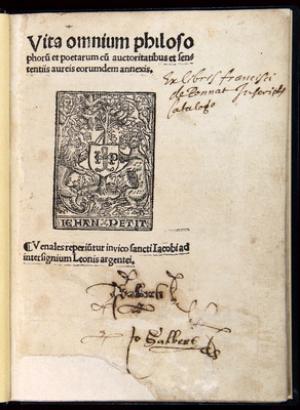 Vita omnium philoso
phorū et poetarum cū auctoritatibus et sen
tentiis aureis eorumdem annexis.
Ex libris francisci
de Bonnat Inscriptus
catalogo
IEHAN PETIT
¶Venales reperiūtur in vico sancti Iacobi ad
intersignium Leonis argentei.
Jo Galbert